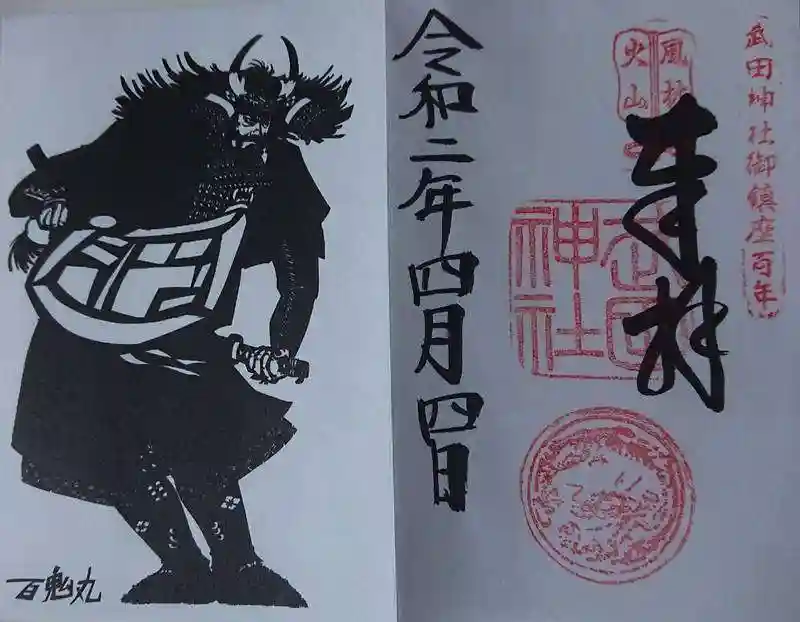 武田神社御鎮座百年
風林
火山
奉拝
武田
神社
令和二年四月四日
百鬼丸